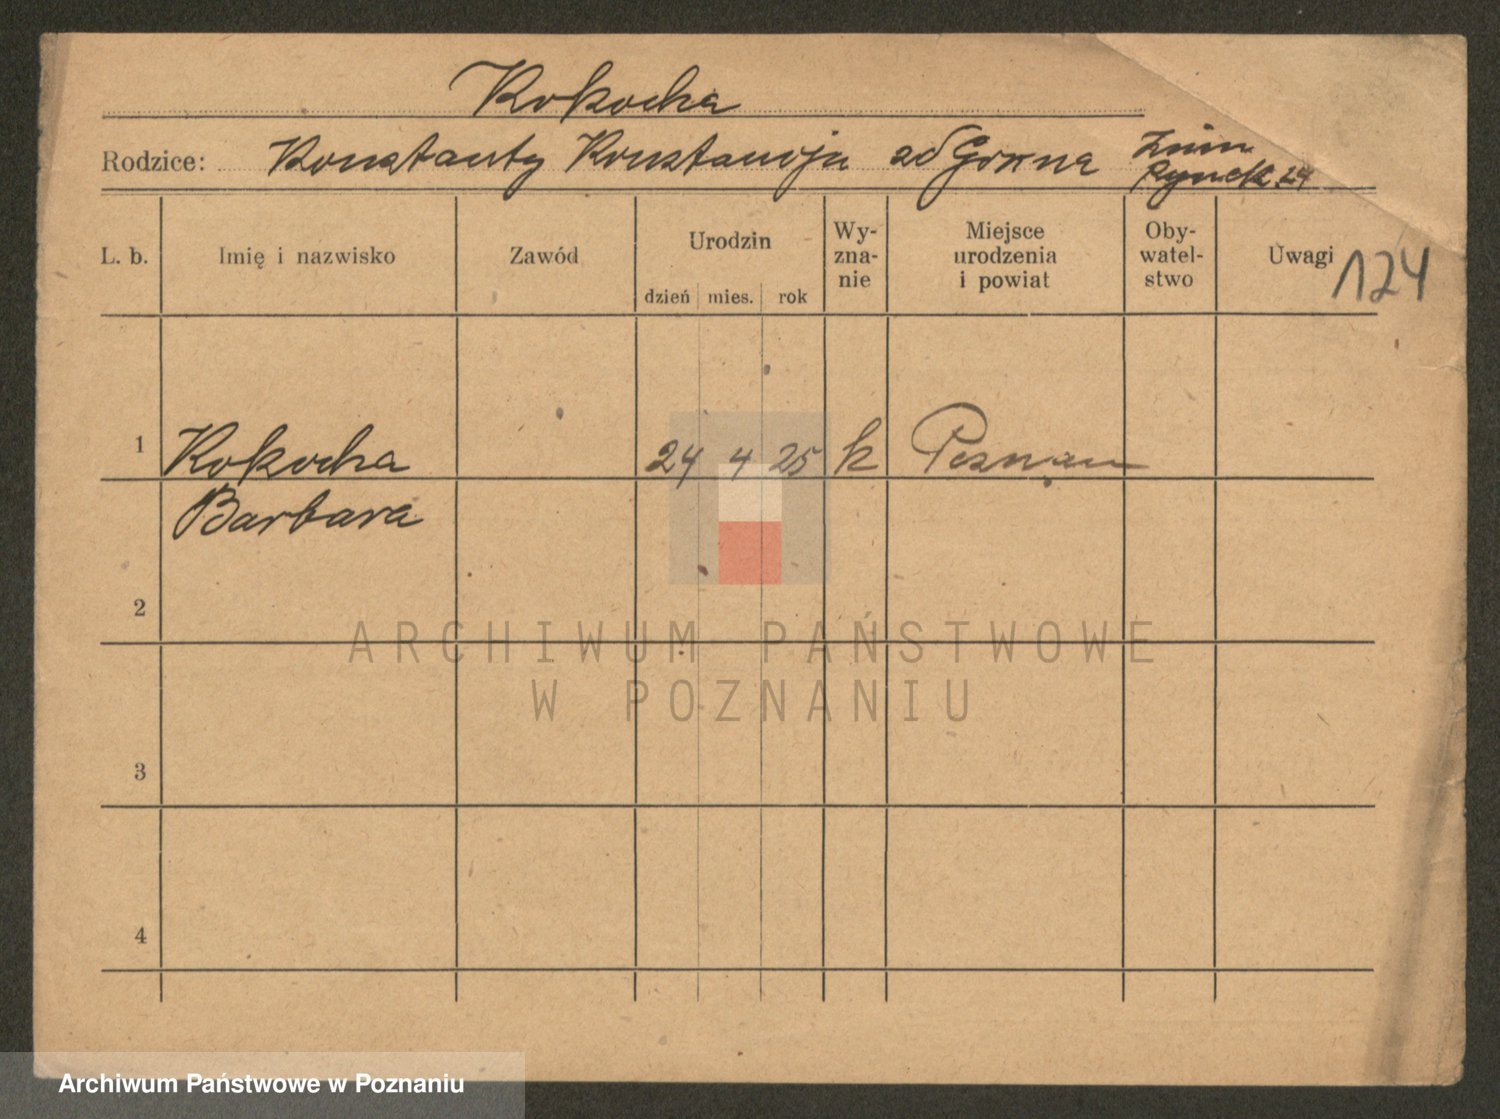 Kokocha
Rodzice: Konstanty Konstancja zd Gorna Żnin
Rynek 24
L. b. Imię i nazwisko Zawód Urodzin dzień mies. rok Wy-zna-nie Miejsce urodzenia i powiat Oby-watel-stwo Uwagi 124
1 Kokocha 24 4 25 k Poznan
Barbara
2
ARCHIWUM PAŃSTWOWE
W POZNANIU
3
4
Archiwum Państwowe w Poznaniu